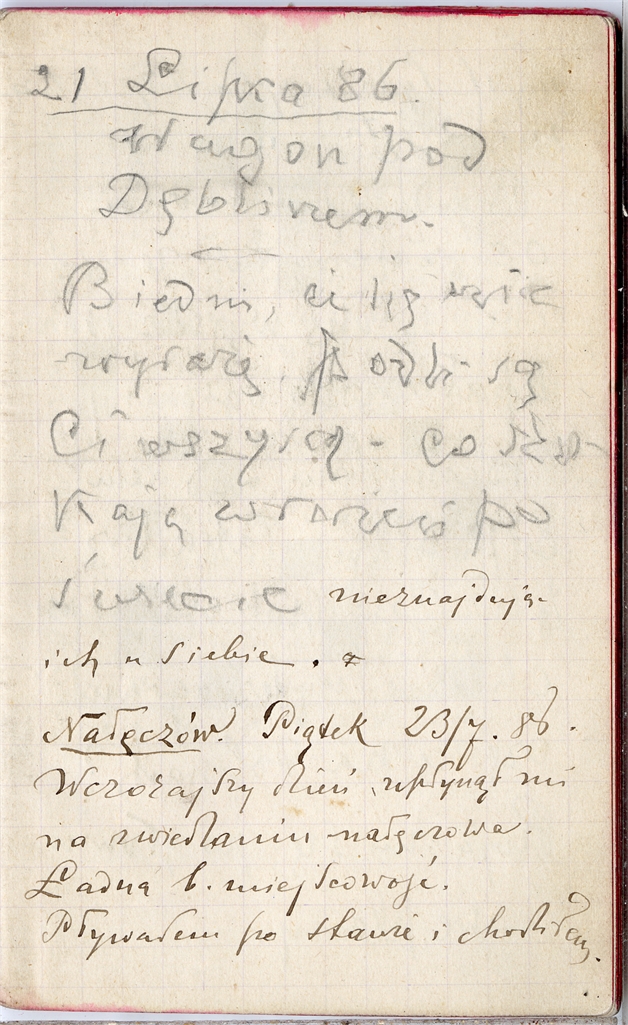 21 Lipca 86.
Wagon pod
Dęblinem.
Biedni, ci
wydają. Ludzi są
Ci wszyscy - co szu-
kają wrażeń po
świecie nieznajdując
ich u siebie.
Nałęczów. Piątek 23/7. 86.
Wczorajszy dzień upłynął mi
na zwiedzaniu nałęczowa.
Ładna b. miejscowość.
Pływałem po stawie i chodziłem